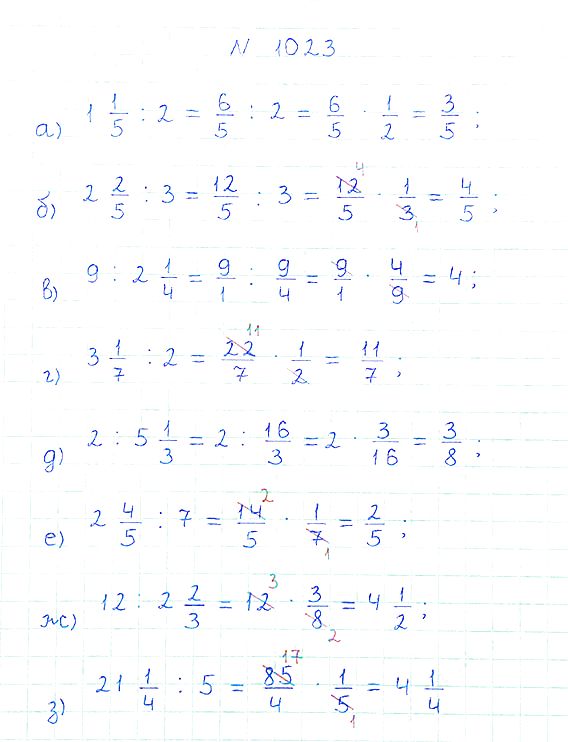 N 1023
а) 1 1/5 : 2 = 6/5 : 2 = 6/5 · 1/2 = 3/5 ;
б) 2 2/5 : 3 = 12/5 : 3 = 12/5 4 · 1/3 1 = 4/5 ;
в) 9 : 2 1/4 = 9/1 : 9/4 = 9/1 · 4/9 = 4 ;
г) 3 1/7 : 2 = 22/7 11 · 1/2 = 11/7 ;
д) 2 : 5 1/3 = 2 : 16/3 = 2 · 3/16 = 3/8 ;
е) 2 4/5 : 7 = 14/5 2 · 1/7 1 = 2/5 ;
ж) 12 : 2 2/3 = 12 3 · 3/8 2 = 4 1/2 ;
з) 21 1/4 : 5 = 85/4 17 · 1/5 1 = 4 1/4